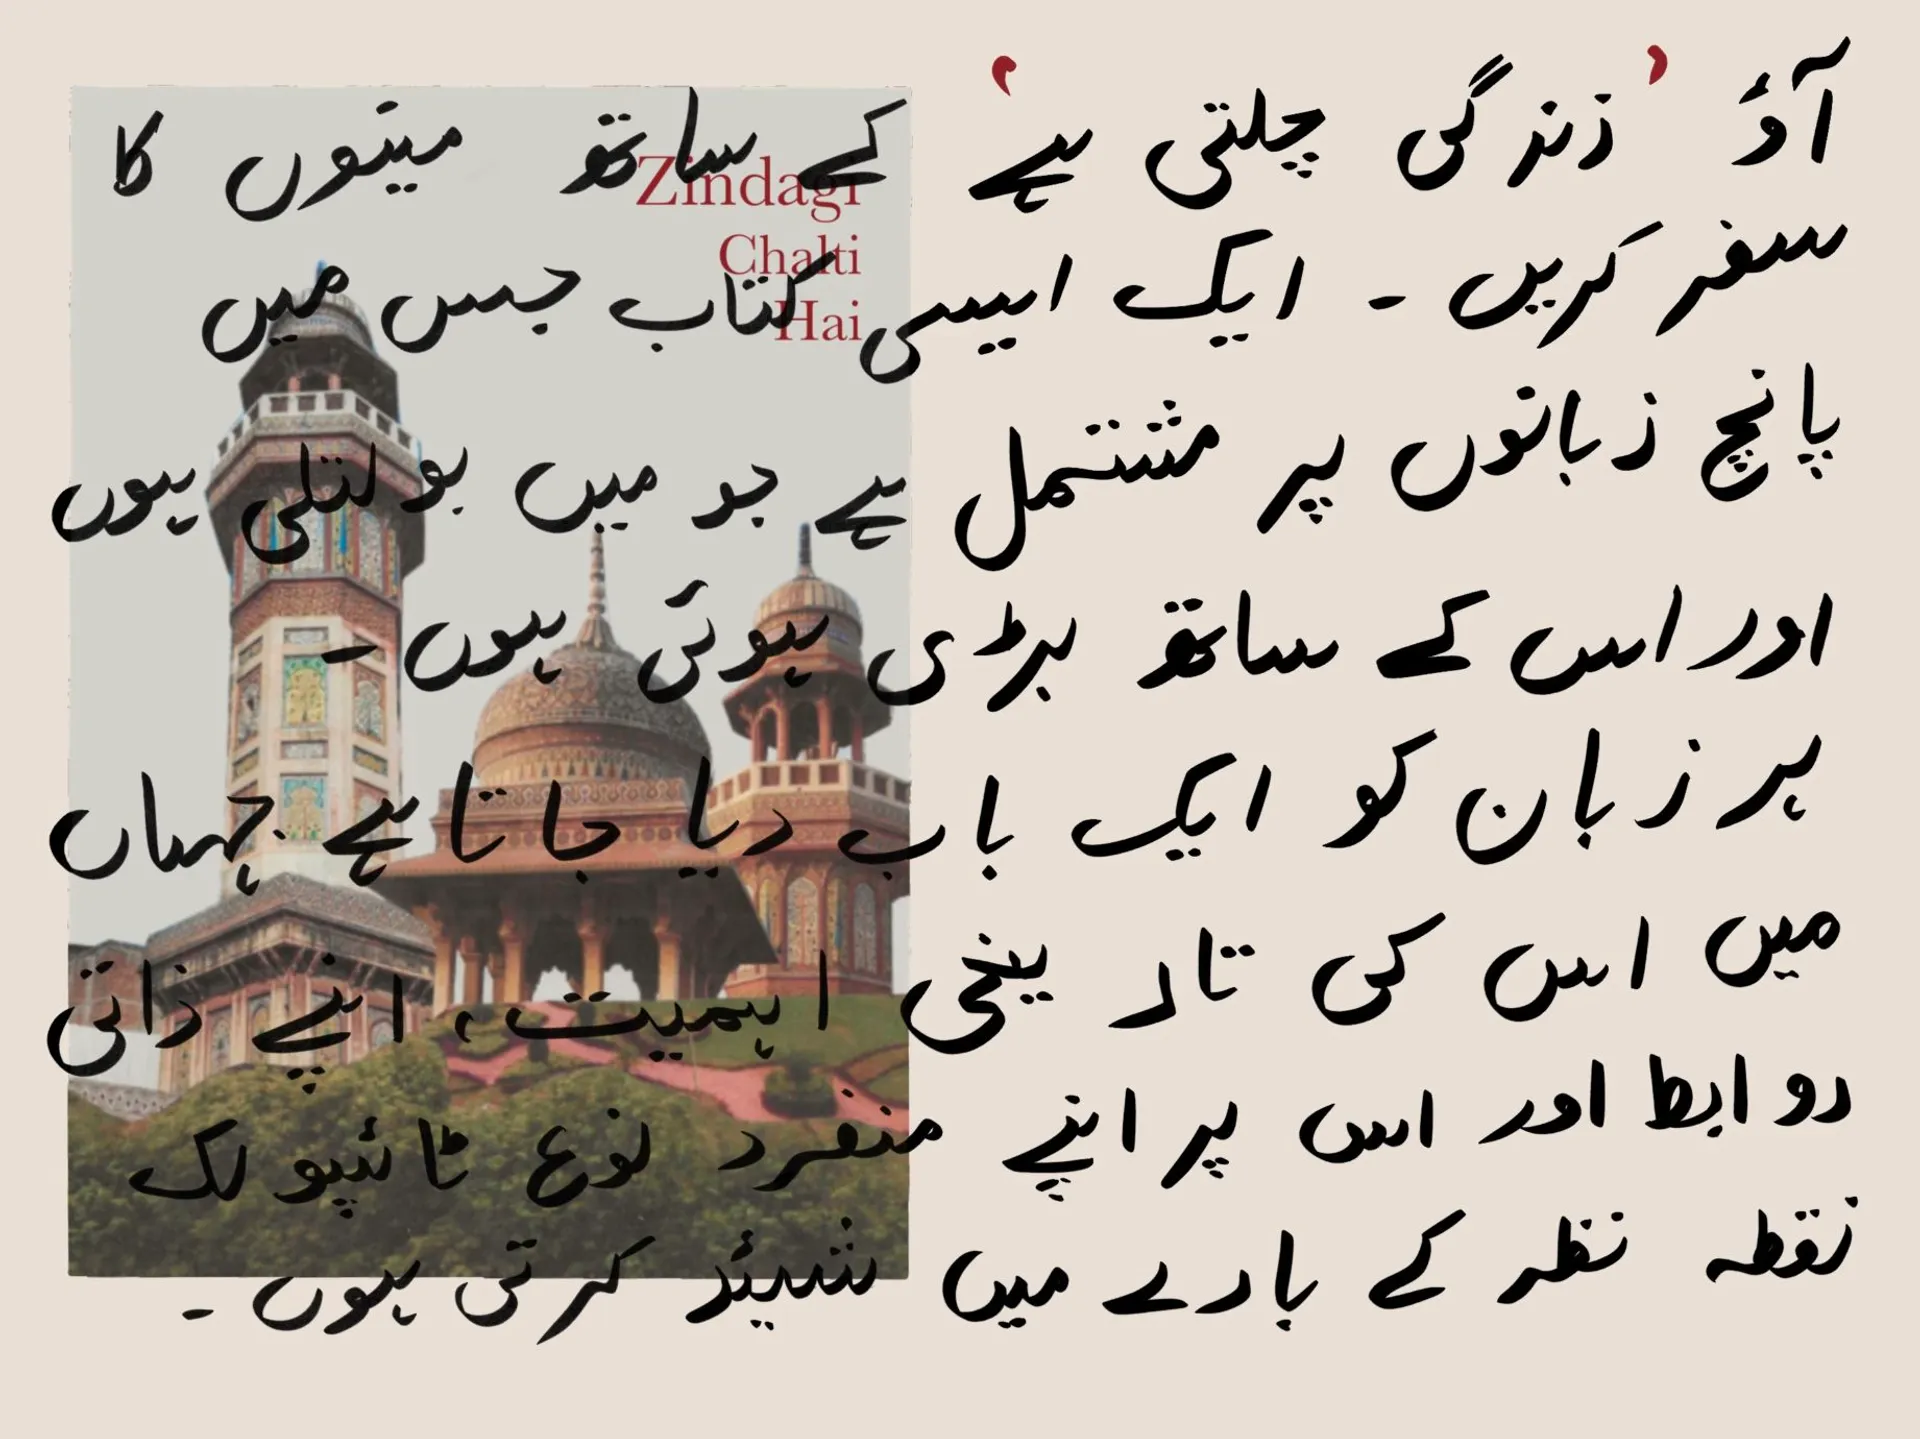 آؤ ’زندگی چلتی ہے‘ کے ساتھ میتوں کا
سفر کریں ۔ ایک ایسی کتاب جس میں
پانچ زبانوں پر مشتمل ہے جو میں بولتلی ہوں
اور اس کے ساتھ بڑی ہوئی ہوں ۔
ہر زبان کو ایک باب دیا جاتا ہے جہاں
میں اس کی تاریخی اہمیت، اپنے ذاتی
روابط اور اس پر اپنے منفرد نوع ٹائپو
نقطہ نظر کے بارے میں شیئر کرتی ہوں ۔
Zindagi
Chalti
Hai